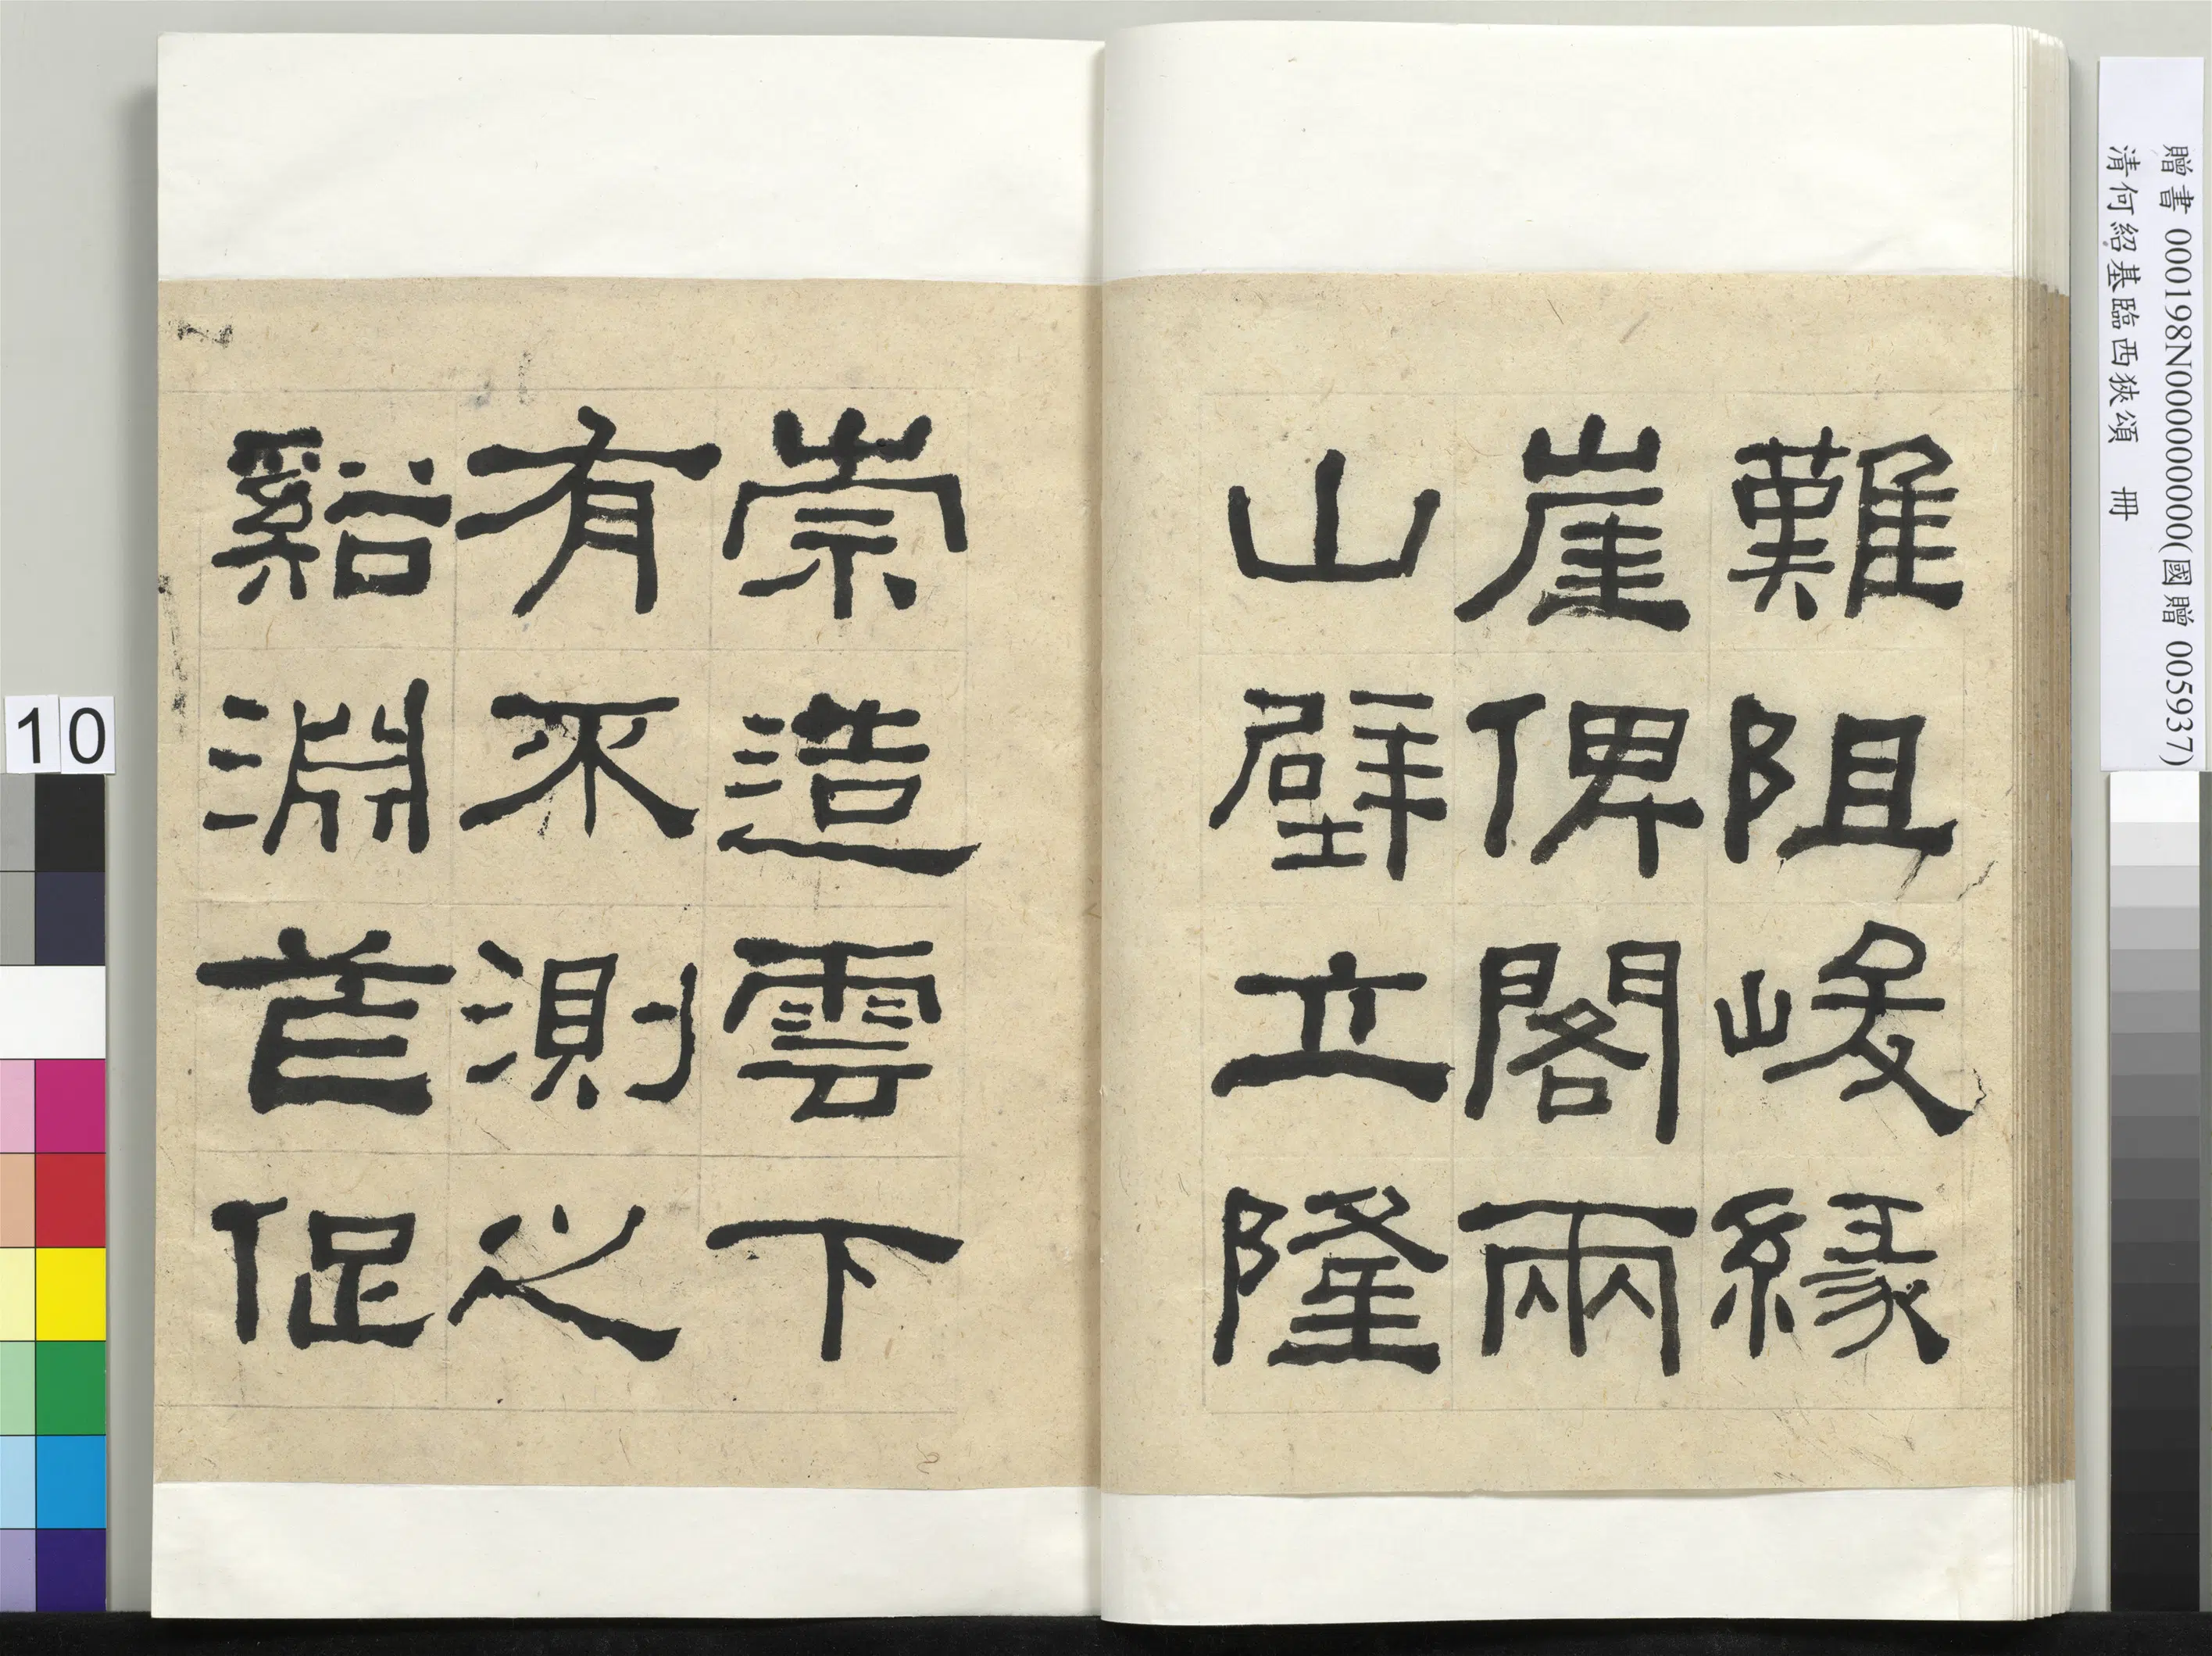 難阻峻緣
崖俾閣兩
山壁立隆
崇造雲下
有不測之
谿淵芒促
贈書 000198N000000000(國贈 005937)
清何紹基臨西狹頌 冊
10